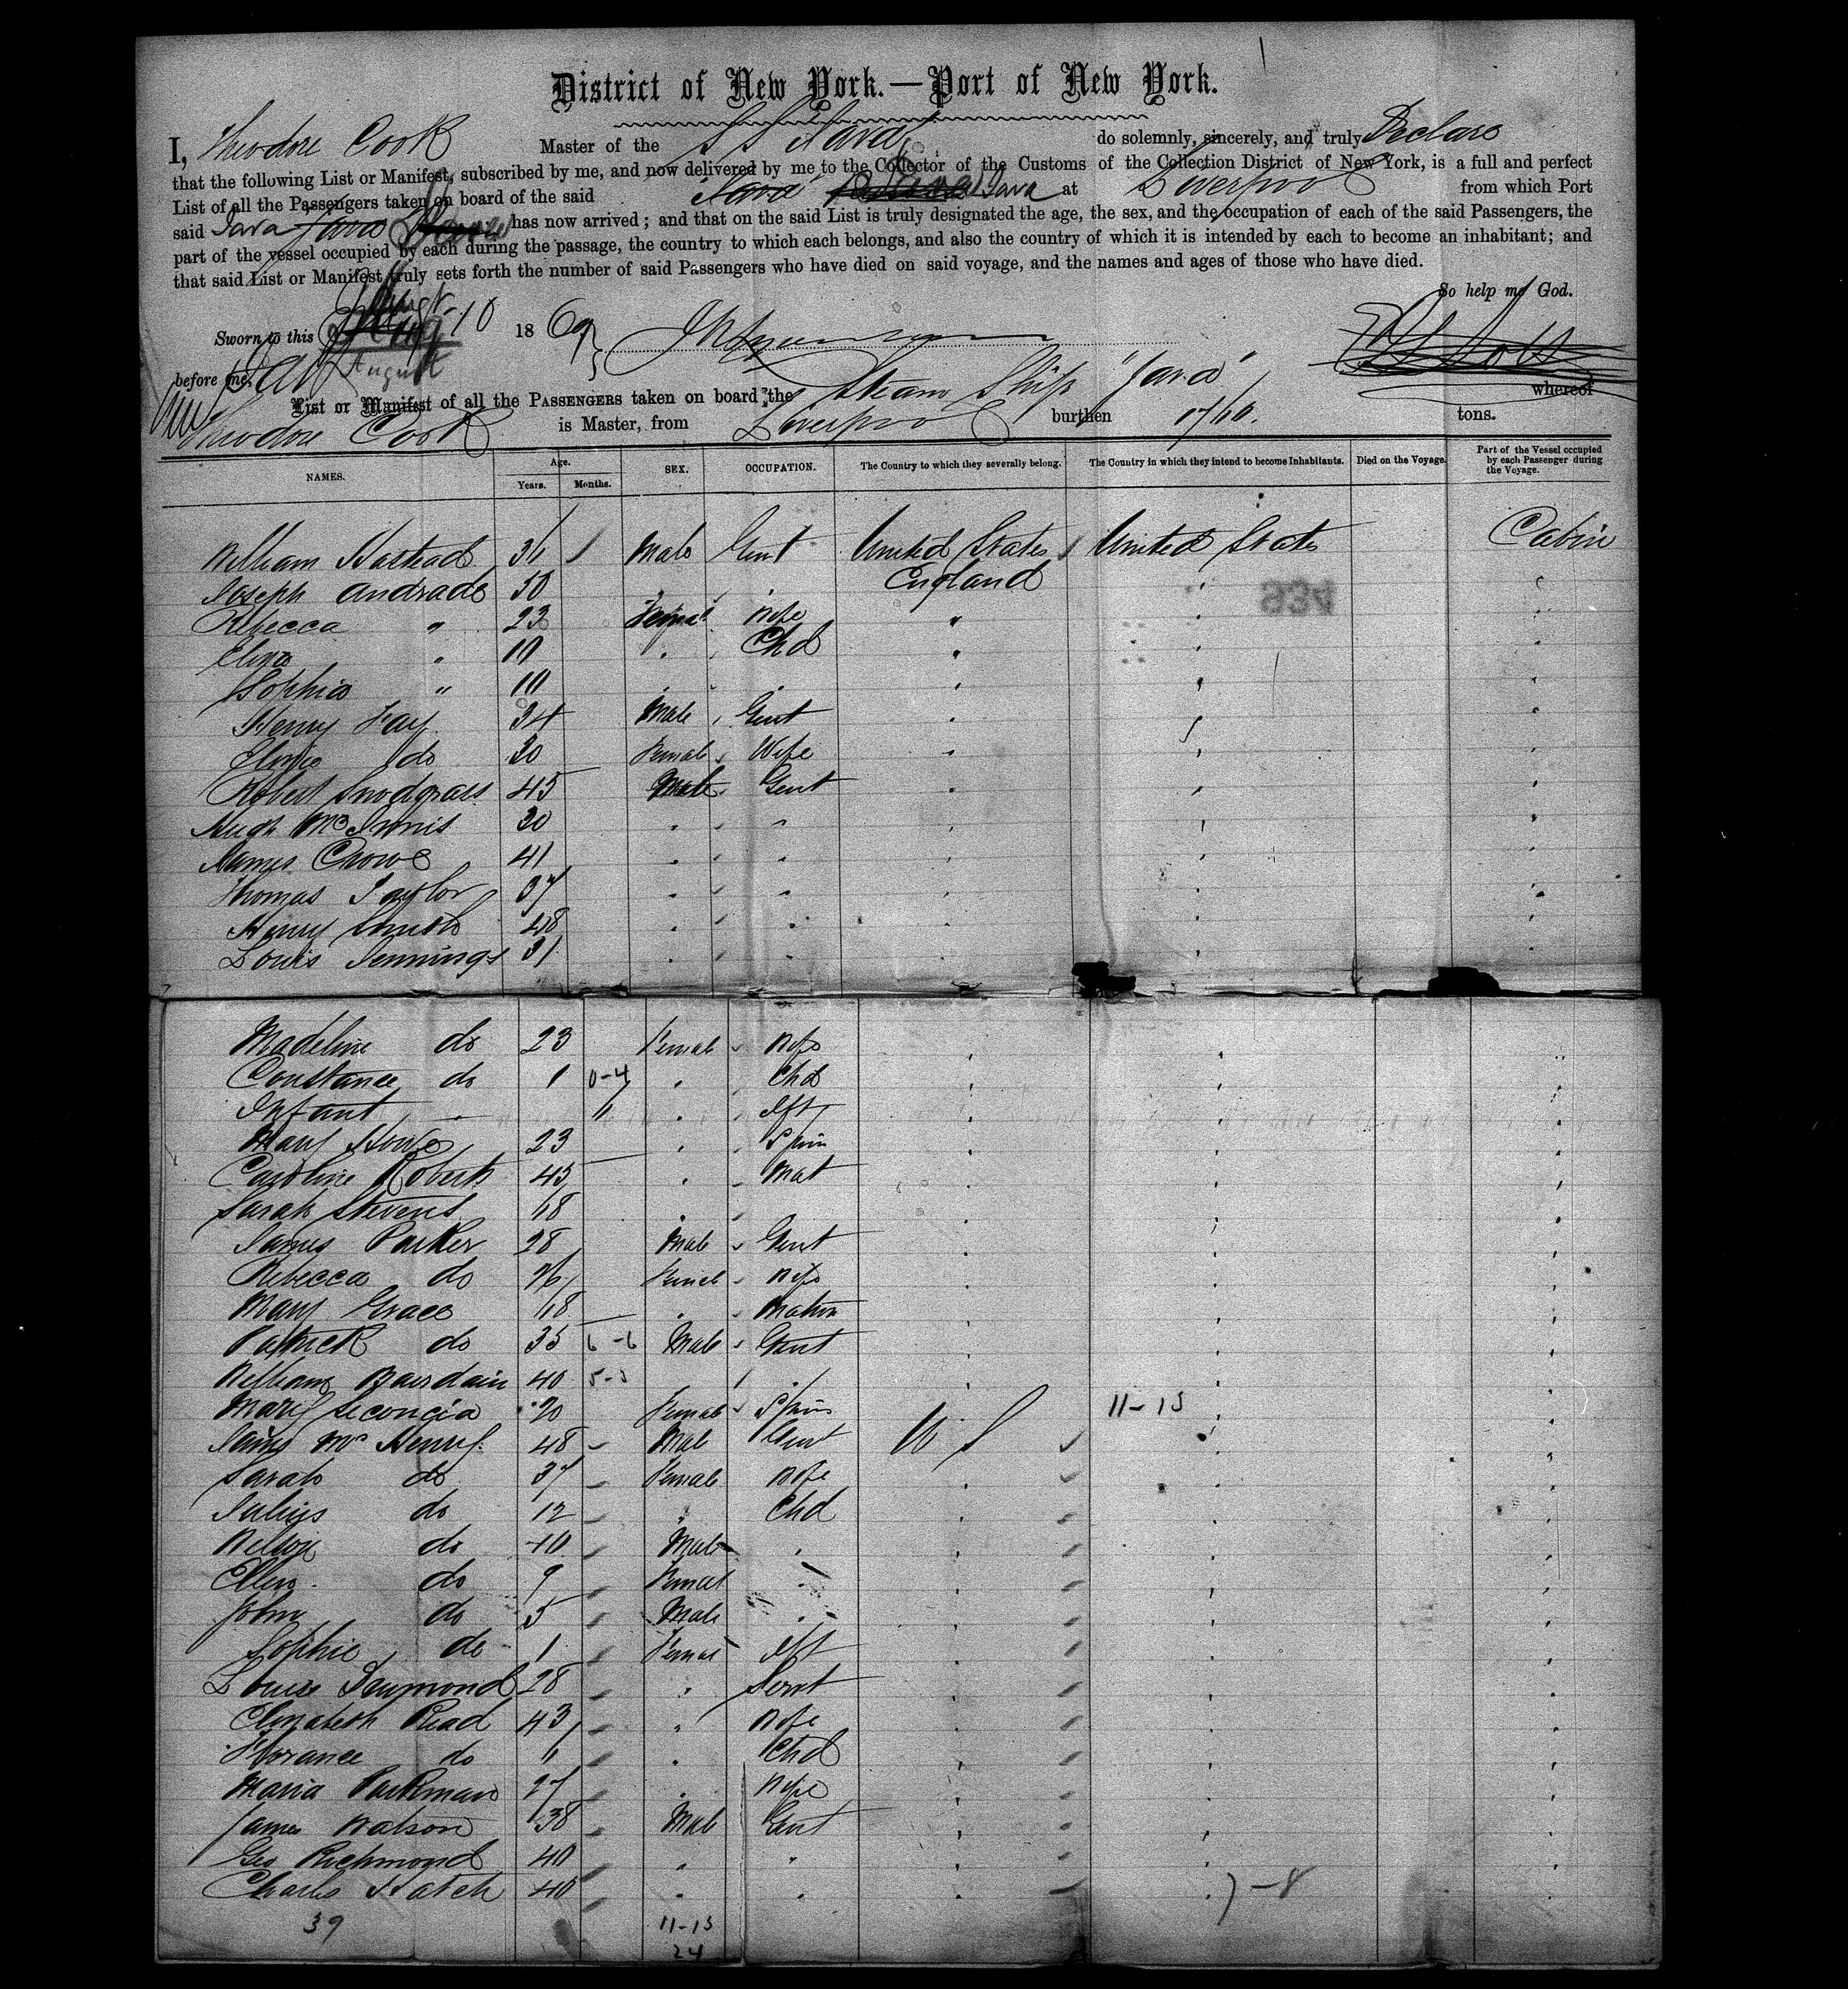 District of New York.—Port of New York.
I, Theodore Cook Master of the S S Java do solemnly, sincerely, and truly Declare
that the following List or Manifest, subscribed by me, and now delivered by me to the Collector of the Customs of the Collection District of New York, is a full and perfect
List of all the Passengers taken on board of the said Java Java at Liverpool from which Port
said Java has now arrived; and that on the said List is truly designated the age, the sex, and the occupation of each of the said Passengers, the
part of the vessel occupied by each during the passage, the country to which each belongs, and also the country of which it is intended by each to become an inhabitant; and
that said List or Manifest truly sets forth the number of said Passengers who have died on said voyage, and the names and ages of those who have died.
So help me God.
Sworn to this 10 1869
before me, August
List or Manifest of all the PASSENGERS taken on board the Steam Ship "Java" whereof
Theodore Cook is Master, from Liverpool burthen tons.
NAMES. Age. Years. Months. SEX. OCCUPATION. The Country to which they severally belong. The Country in which they intend to become Inhabitants. Died on the Voyage. Part of the Vessel occupied by each Passenger during the Voyage.
William Hastead 36 Male Gent United States United States Cabin
Joseph Andrade 50 " " England "
934
Rebecca " 23 Female Wife "
Eliza " 10 " Chd "
Sophia " 10 " "
Henry Fay 34 Male Gent "
do 30 Female Wife "
Robert Snodgrass 45 Male Gent "
Hugh McInnis 30 " "
James Crowe 41 " "
Thomas Taylor 37 " "
Henry Smith 48 " "
Louis Jennings 31 " "
Madeline do 23 Female Wife
Constance do 1 0-4 " Chd
Infant " Ift
Mary Howe 23 " Spin
Caroline Roberts 45 " Mat
Sarah Stevens 18 "
James Parker 28 Male Gent
Rebecca do 26 Female Wife
Mary Grace 18 " Matron
Patrick do 35 6-6 Male Gent
William 40 5-5 "
Mary 20 Female Spin 11-13
James McHenry 48 Male Gent U S
Sarah do 37 Female Wife
Julius do 12 " Chd
Wilson do 10 Male "
Ellen do 9 Female "
John do 5 Male "
Sophie do 1 Female Ift
Louise 28 " Servt
Elizabeth Read 43 " Wife
Florance do 11 " Chd
Maria Parkman 27 " Wife
James Watson 38 Male Gent
Geo Richmond 40 " "
Charles Hatch 40 " " 7-8
39 11-13
24